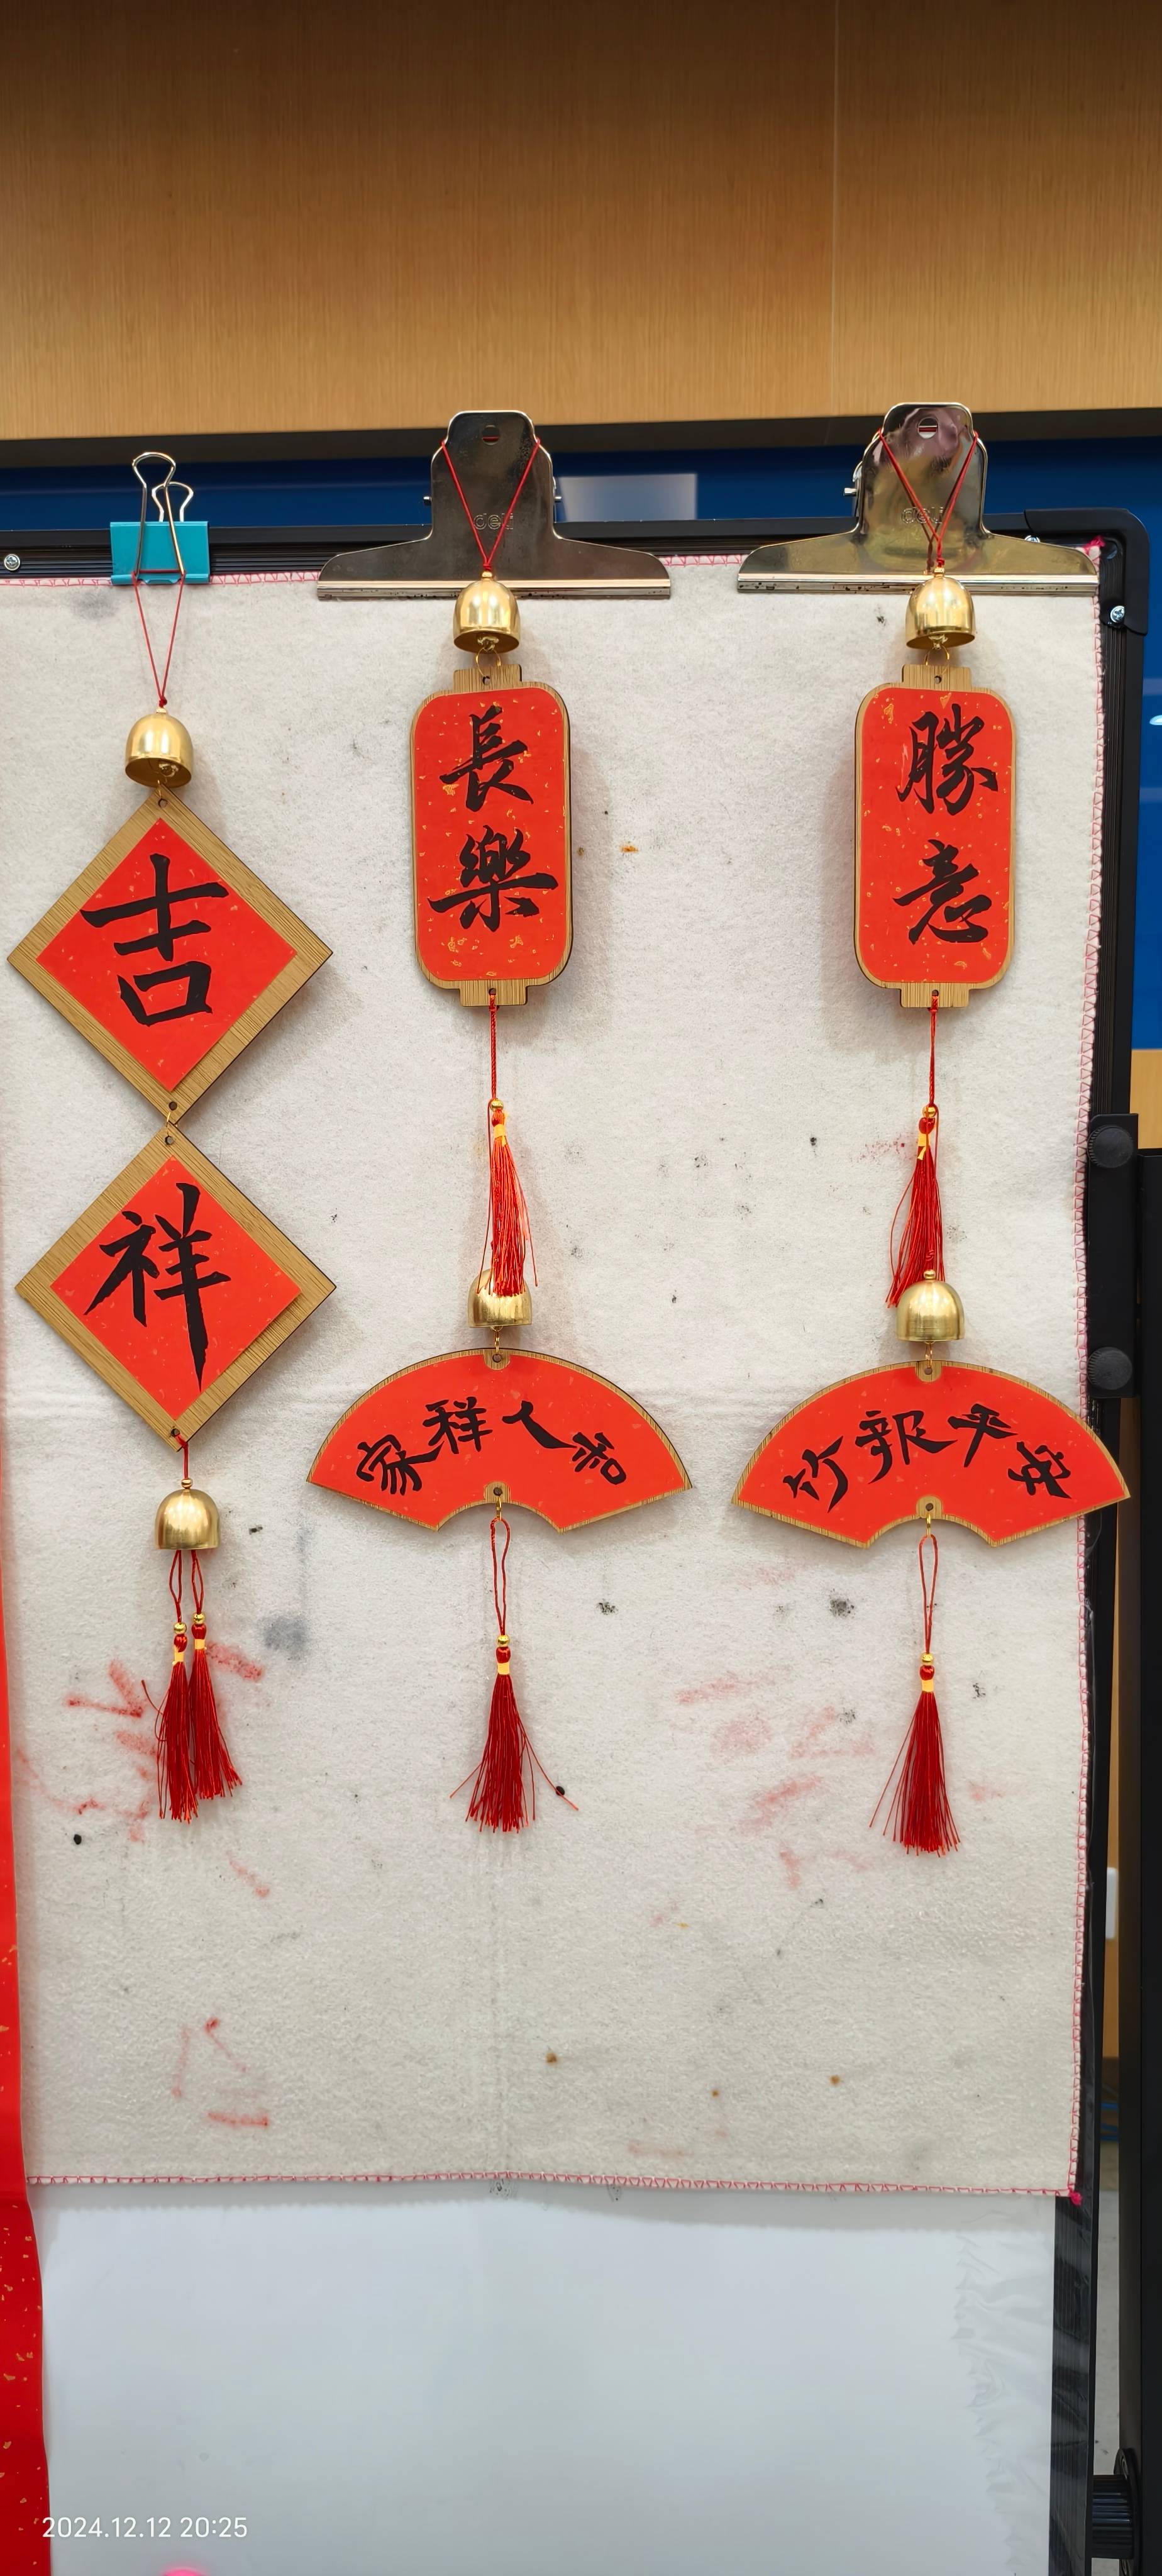 deli
deli
吉
祥
長
樂
勝
意
家祥人和
竹報平安
2024.12.12 20:25